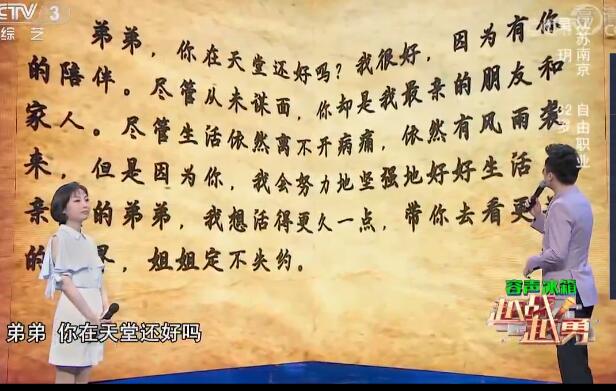 CCTV 3
综艺
弟弟，你在天堂还好吗？我很好，因为有你
的陪伴。尽管从未谋面，你却是我最亲的朋友和
家人。尽管生活依然离不开病痛，依然有风雨袭
来，但是因为你，我会努力地坚强地好好生活
亲 的弟弟，我想活得更久一点，带你去看更
的 界，姐姐定不失约。
江苏南京
玥 32岁
自由职业
容声冰箱
越战越勇
弟弟 你在天堂还好吗